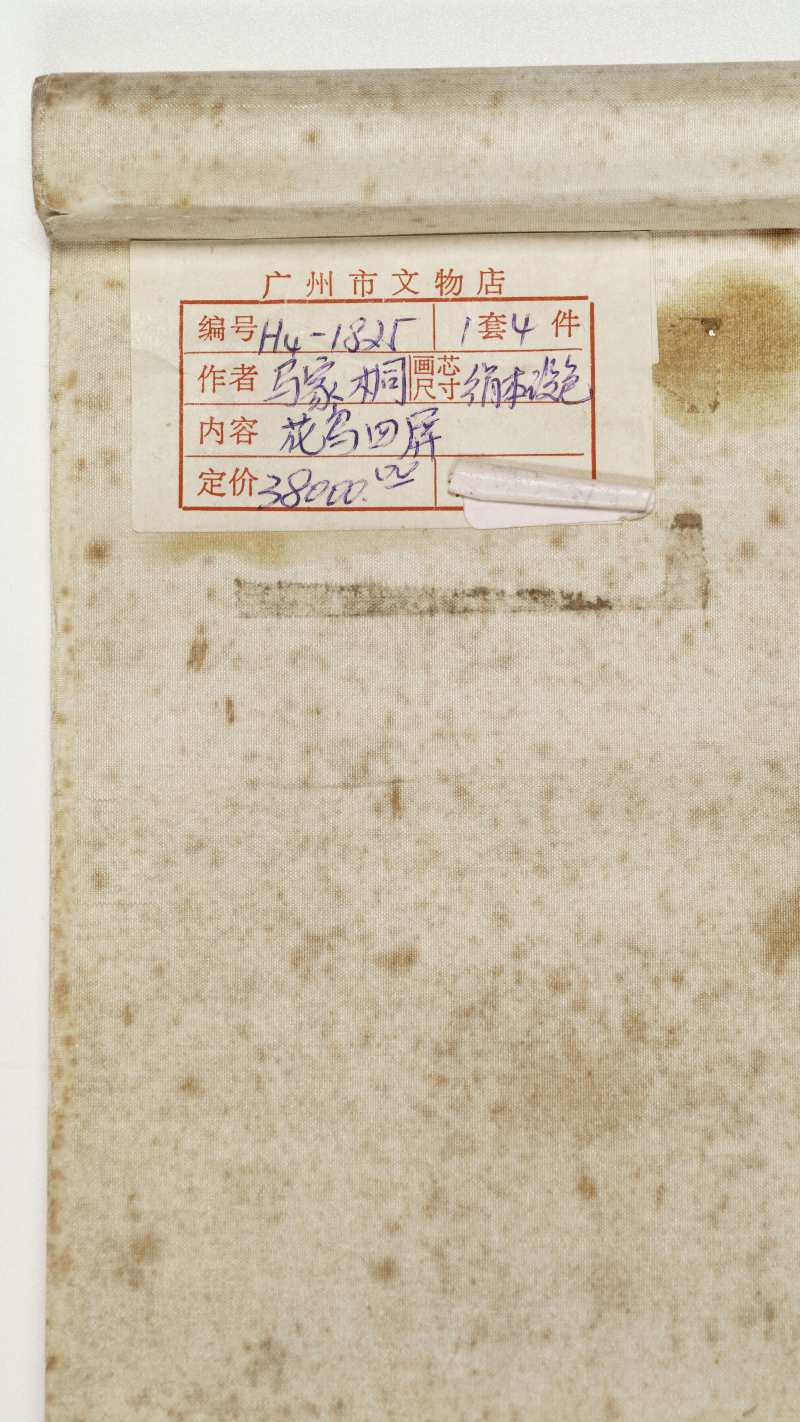 广州市文物店
编号 H4-1825 1套4件
作者 马家桐 画芯尺寸 绢本设色
内容 花鸟四屏
定价 38000.00